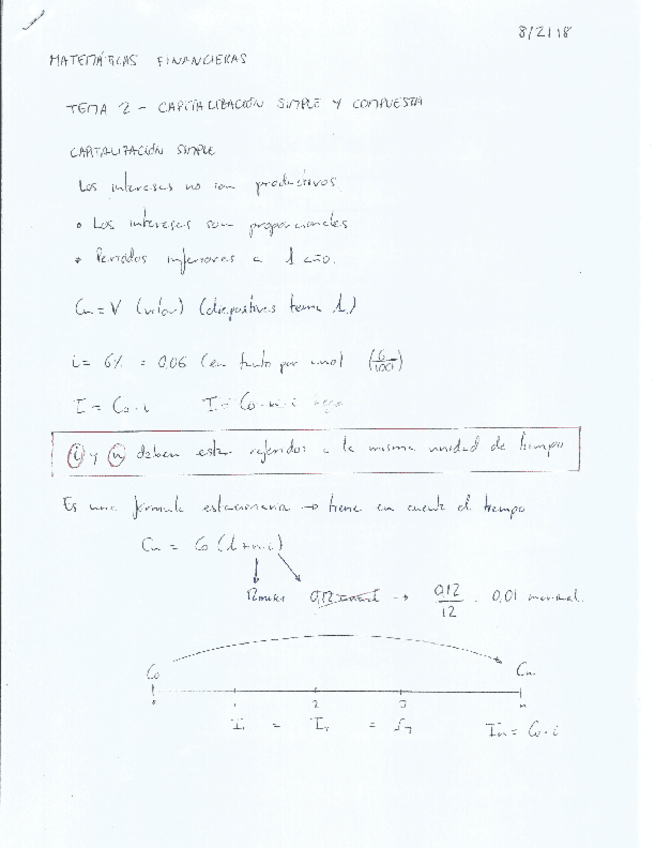 8/2/18
MATEMÁTICAS FINANCIERAS
TEMA 2 - CAPITALIZACIÓN SIMPLE Y COMPUESTA
CAPITALIZACIÓN SIMPLE
Los intereses no son productivos.
• Los intereses son proporcionales
• Periodos inferiores a 1 año.
Cn = V (valor) (diapositivas tema 1.)
i = 6% = 0,06 (en tanto por uno) (6/100)
I = Co · i I = Co · n · i
i y n deben estar referidos a la misma unidad de tiempo
Es una formula estacionaria → tiene en cuenta el tiempo
Cn = Co (1 + n · i)
12 meses 0,12 anual → 0,12/12 = 0,01 mensual.
Co Cn
0 1 2 3 n
I1 = I2 = I3 In = Co · i